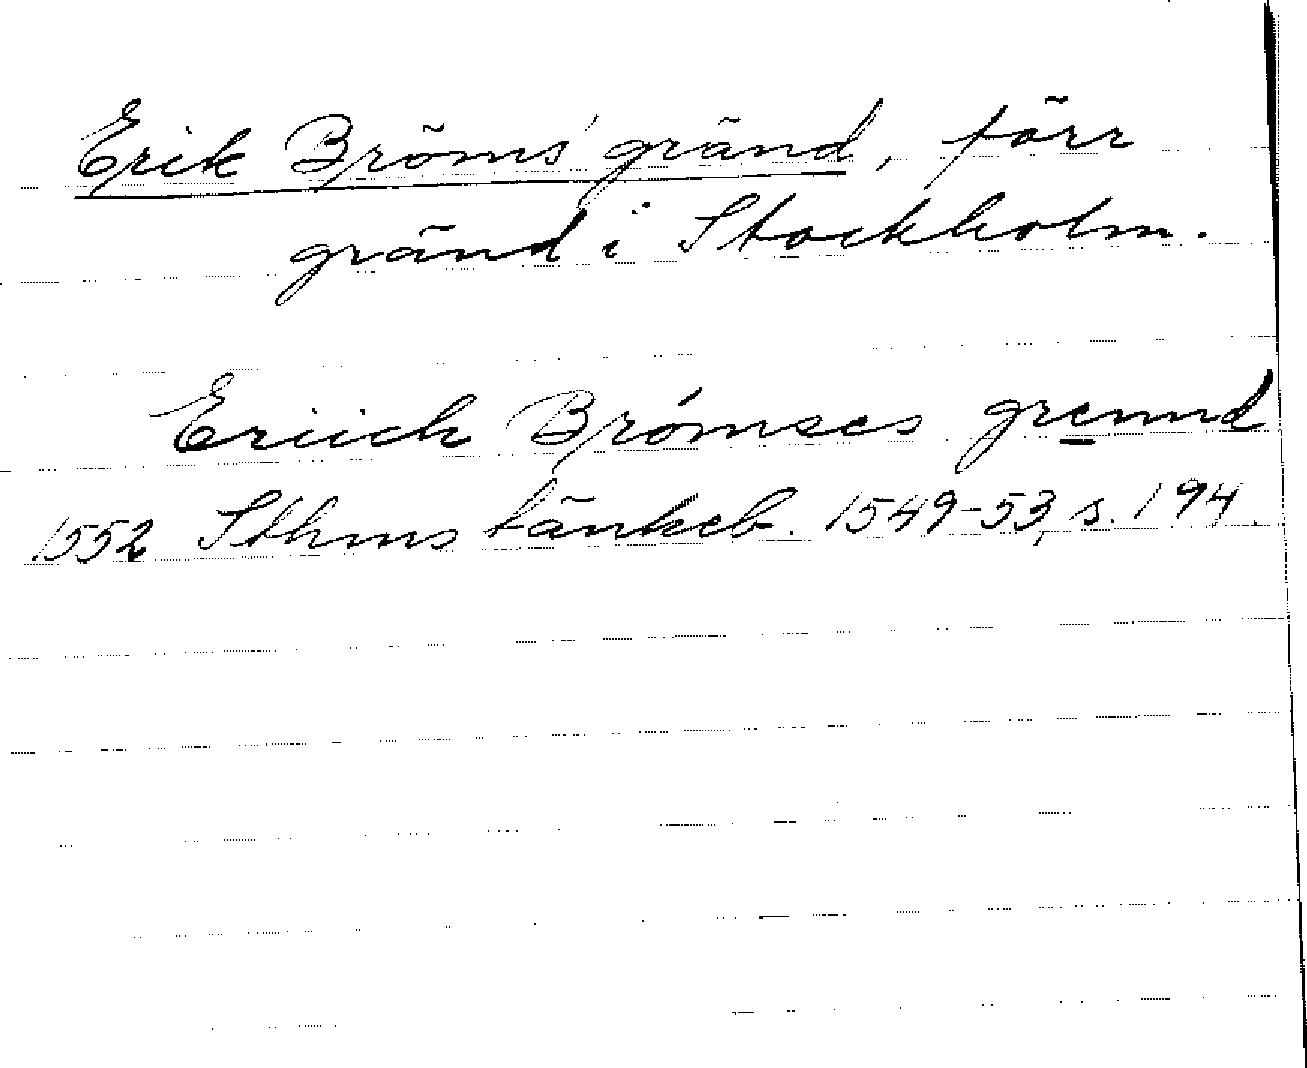 Erik Bröms' gränd, förr
gränd i Stockholm.
Eriick Brómses grennd
1552 Sthms tänkeb. 1549-53, s. 194.